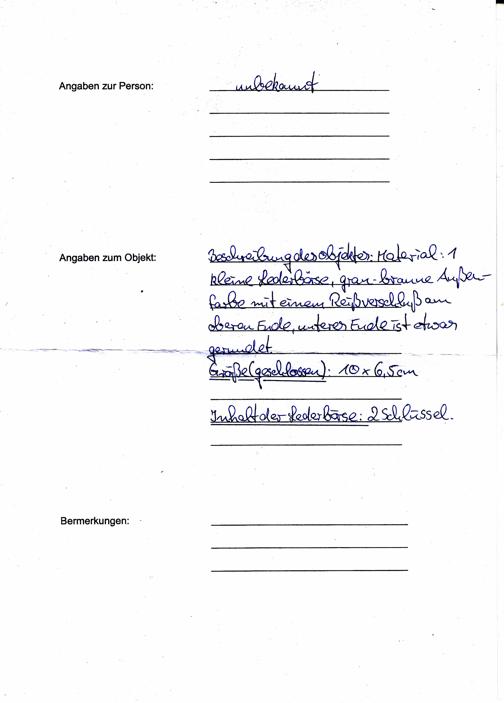 Angaben zur Person: unbekannt
Angaben zum Objekt: Beschreibung des Objektes: Material: 1
kleine Lederbörse, grau-braune Außen-
farbe mit einem Reißverschluß am
oberen Ende, unteres Ende ist etwas
gerundet.
Größe (geschlossen): 10 x 6,5cm
Inhalt der Lederbörse: 2 Schlüssel.
Bermerkungen: